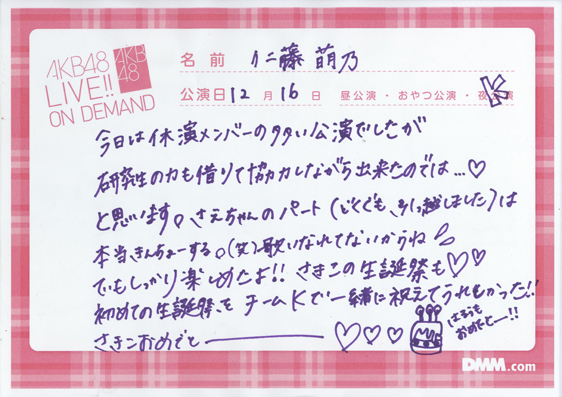 AKB48
LIVE!!
ON DEMAND
AKB
48
名前 仁藤 萌乃
公演日 12月16日 昼公演・おやつ公演・夜公演
今日は休演メンバーの多い公演でしたが
研究生の力も借りて協力しながら出来たのでは…♡
と思います。さえちゃんのパート(どくども、引っ越しました)は
本当、きんちょーする。(笑)歌いなれてないからね
でもしっかり楽しめたよ!!さきこの生誕祭も♡♡
初めての生誕祭をチームKで一緒に祝えてうれしかった!!
さきこおめでとー♡♡♡
はるうも
おめでとー!!
DMM.com